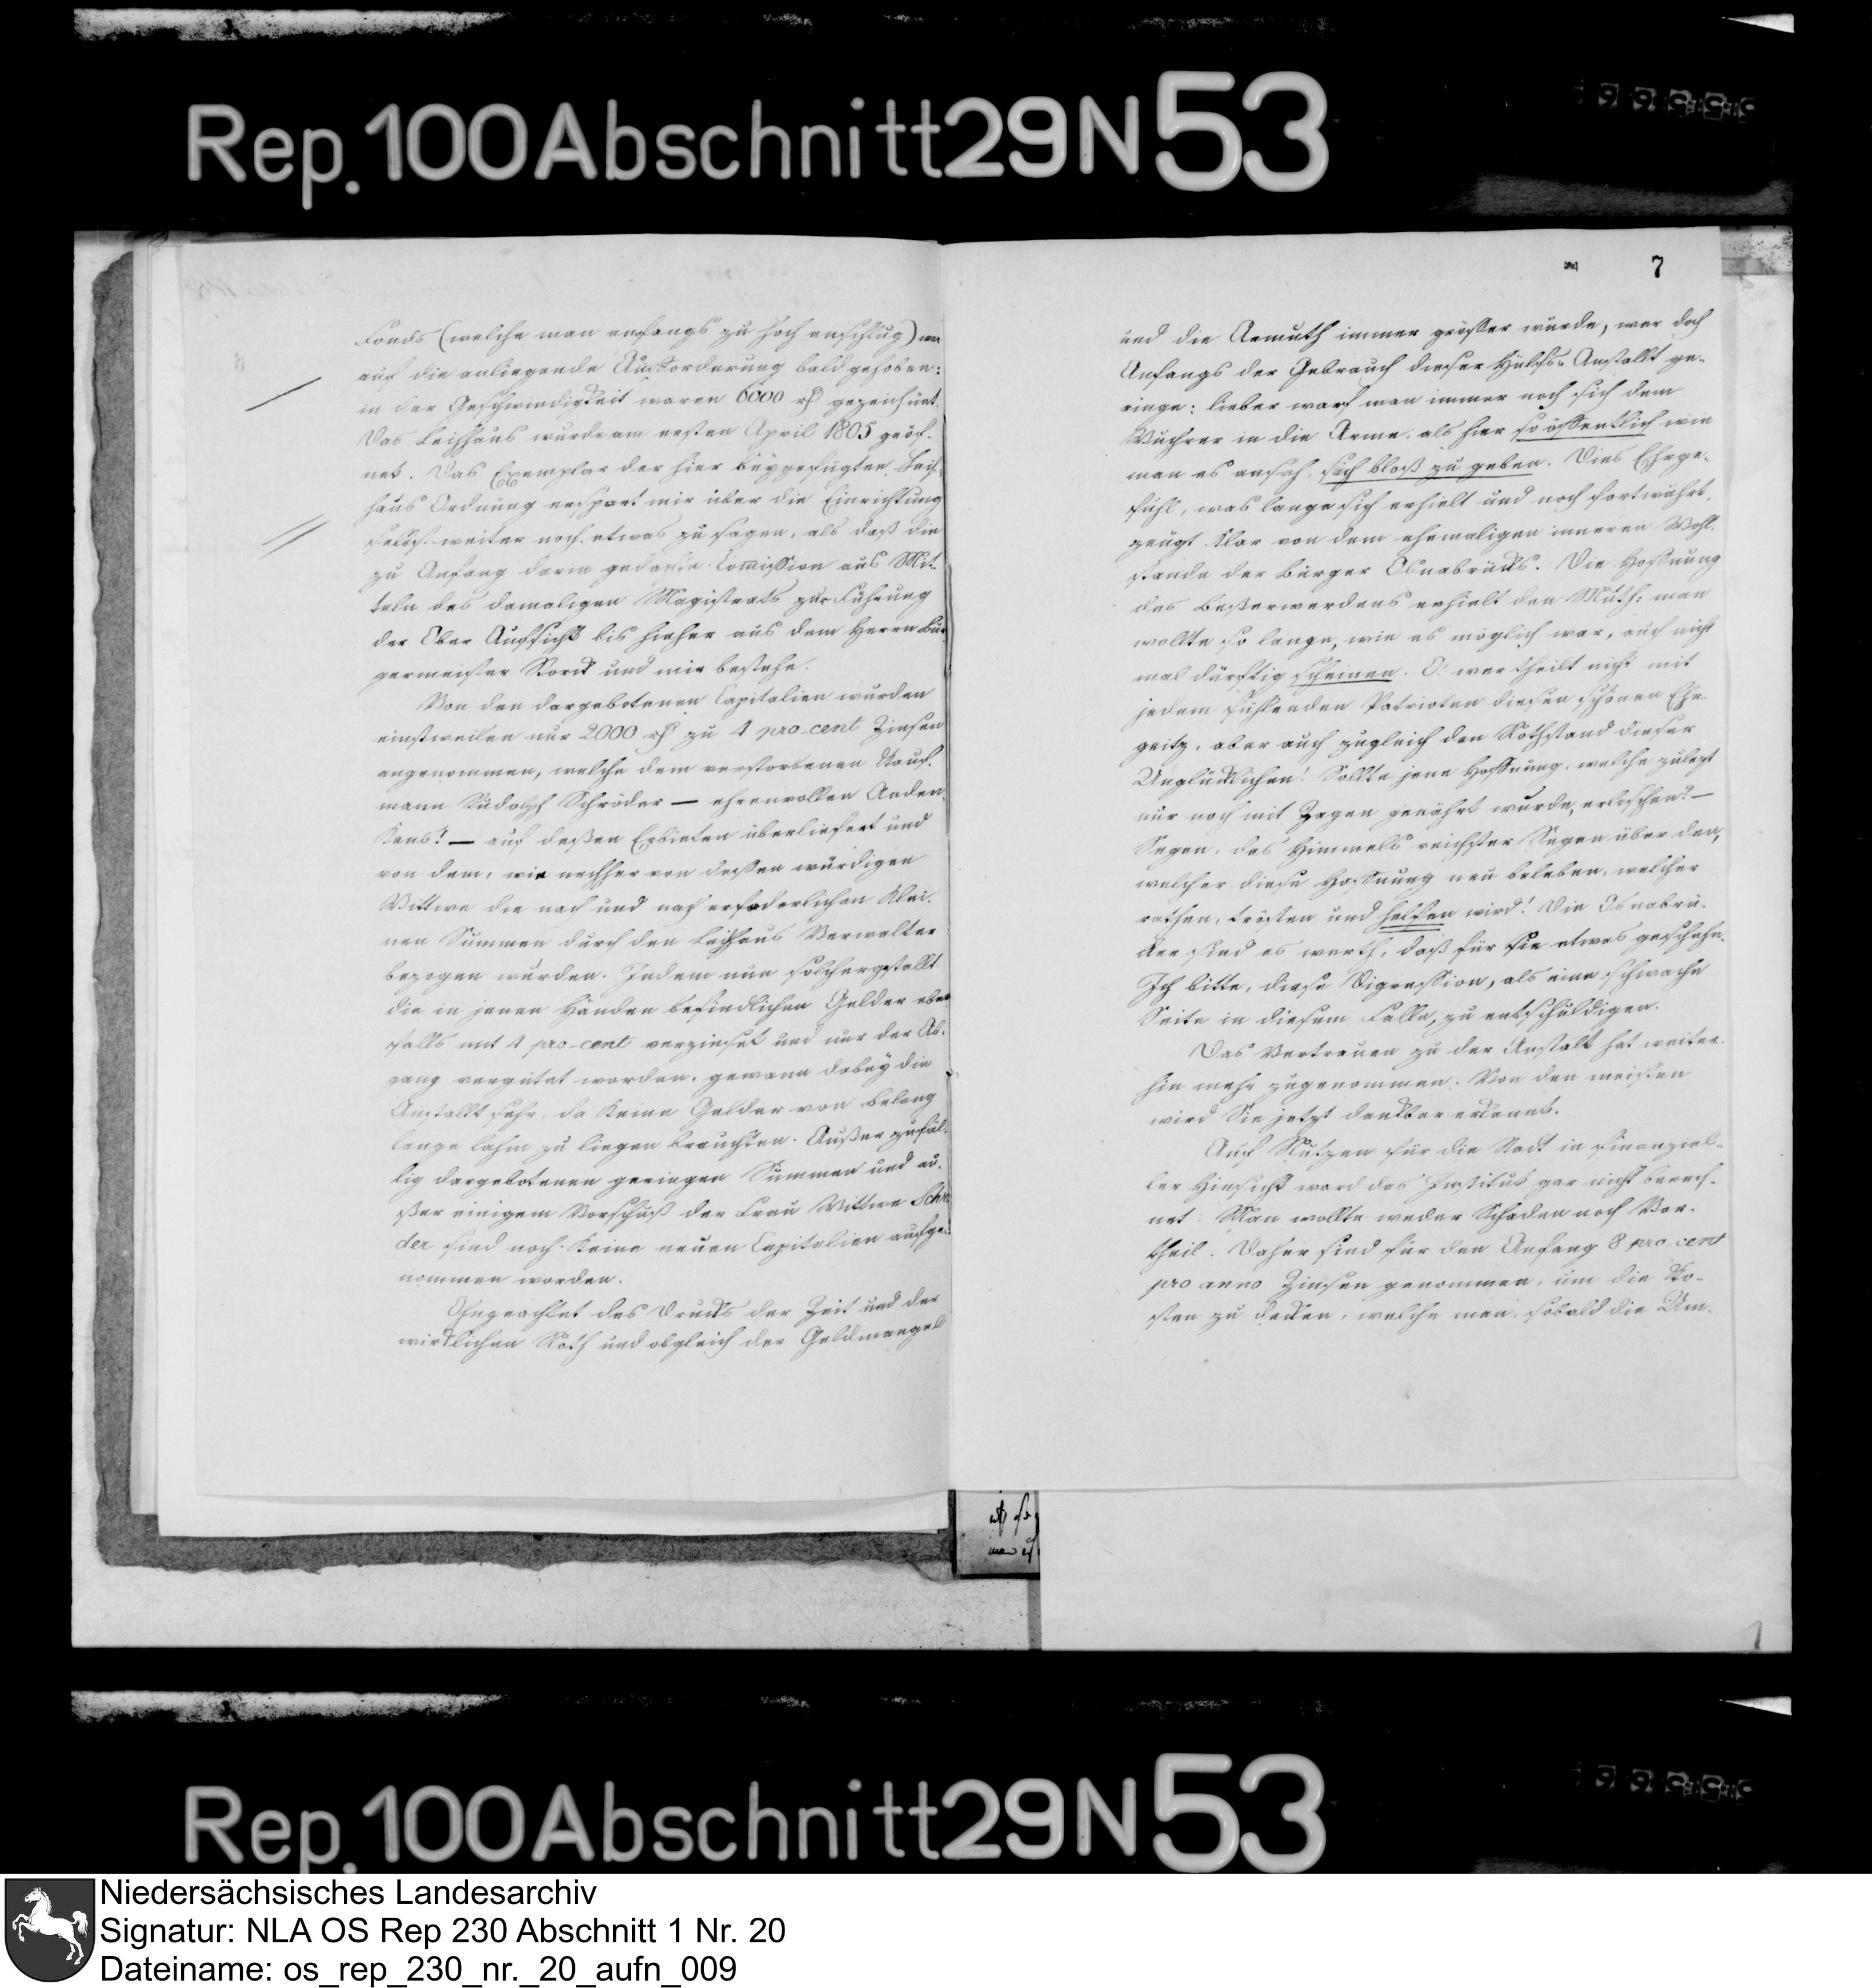 Rep. 100 Abschnitt 29 N 53
7
Fonds (welche man anfangs zu hoch anschlug) war
auf die anliegende Aufforderung bald gehoben:
in der Geschwindigkeit waren 6000 rh gezeichnet.
Das Leihhaus wurde am ersten April 1805 geöf-
net. Das Exemplar der hier beygefügten Leih-
haus Ordnung erspart mir über die Einrichtung
selbst weiter noch etwas zu sagen, als daß die
zu Anfang darin gedachte Commission aus Mit-
teln des damaligen Magistrats zur Führung
der Ober Aufsicht bis hieher aus dem Herrn Bür-
germeister Storck und mir bestehe.
Von den dargebotenen Capitalien wurden
einstweilen nur 2000 rh zu 4 pro cent Zinsen
angenommen, welche dem verstorbenen Kauf-
mann Rudolph Schröder — ehrenvollen Anden-
kens! — auf deßen Erbieten überliefert und
von dem, wie nachher von dessen würdigen
Wittwe die nach und nach erforderlichen klei-
nen Summen durch den Leihhaus Verwalter
bezogen wurden. Indem nun solchergestallt
die in jenen Händen befindlichen Gelder eben
falls mit 4 pro-cent verzinset und nur der Ab-
gang vergütet worden, gewann dabey die
Anstallt sehr, da keine Gelder von Belang
lange lahm zu liegen brauchten. Außer zufäl-
lig dargebotenen geringen Summen und au-
ßer einigem Vorschuß der Frau Wittwe Schrö
der sind noch keine neuen Capitalien aufge-
nommen worden.
Ohngeachtet des Drucks der Zeit und der
wirklichen Noth und obgleich der Geldmangel
und die Armuth immer grösser wurde, war doch
Anfangs der Gebrauch dieser Hülfs-Anstallt ge-
ringe: lieber warf man immer noch sich dem
Wuchrer in die Arme, als hier so öffentlich wie
man es ansah, sich bloß zu geben. Dies Ehrge-
fühl, was lange sich erhielt und noch fortwährt,
zeugt klar von dem ehemaligen inneren Wohl-
stande der Bürger Osnabrücks. Die Hoffnung
des Beßerwerdens erhielt den Muth: man
wollte so lange, wie es möglich war, auch nicht
mal dürftig scheinen. O! wer theilt nicht mit
jedem fühlenden Patrioten diesen schönen Ehr-
geitz, aber auch zugleich den Nothstand dieser
Unglücklichen! Sollte jene Hoffnung, welche zulezt
nur noch mit Zagen genährt wurde, erlöschen? —
Segen, des Himmels reichster Segen über den,
welcher diese Hoffnung neu beleben, welcher
rathen, trösten und helfen wird! Die Osnabrü-
cker sind es werth, daß für sie etwas geschehe.
Ich bitte, diese Digression, als eine schwache
Seite in diesem Falle, zu entschuldigen.
Das Vertrauen zu der Anstalt hat weiter-
hin mehr zugenommen. Von den meisten
wird Sie jetzt dankbar erkannt.
Auf Nutzen für die Stadt in finanziel-
ler Hinsicht ward das Institut gar nicht berech-
net: Man wollte weder Schaden noch Vor-
theil. Daher sind für den Anfang 8 pro cent
pro anno Zinsen genommen, um die Ko-
sten zu decken, welche man, sobald die Um-
Rep. 100 Abschnitt 29 N 53
Niedersächsisches Landesarchiv
Signatur: NLA OS Rep 230 Abschnitt 1 Nr. 20
Dateiname: os_rep_230_nr._20_aufn_009